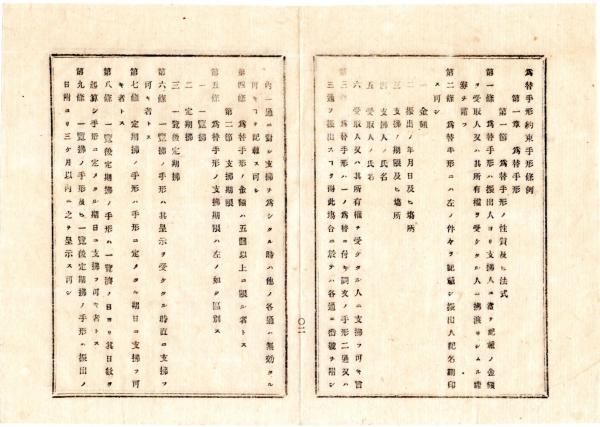 為替手形約束手形條例
第一章 為替手形
第一節 為替手形ノ性質及ヒ法式
第一條 為替手形ハ振出人ヨリ支拂人ニ宛テ記載ノ金額
ヲ受取人又ハ其所有權ヲ受ケタル人ニ拂渡サシムル證
券ヲ謂フ
第二條 為替手形ニハ左ノ件々ヲ記載シ振出人記名調印
ス可シ
一 金額
二 振出ノ年月日及ヒ塲所
三 支拂ノ期限及ヒ塲所
四 支拂人ノ氏名
五 受取人ノ氏名
六 受取人又ハ其所有權ヲ受ケタル人ニ支拂フ可キ旨
第三條 為替手形ハ一ノ為替ニ付キ同文ノ手形二通又ハ
三通ヲ振出スコヲ得此塲合ニ於テハ各通ニ番號ヲ附シ
〇二
內一通ニ對シ支拂ヲ為シタル時ハ他ノ各通ハ無効タル
可キコヲ記載ス可シ
第四條 為替手形ノ金額ハ五圓以上ニ限ル者トス
第二節 支拂期限
第五條 為替手形ノ支拂期限ハ左ノ如ク區別ス
一 一覽拂
二 定期拂
三 一覽後定期拂
第六條 一覽拂ノ手形ハ其呈示ヲ受ケタル時直ニ支拂フ
可キ者トス
第七條 定期拂ノ手形ハ手形ニ定メタル期日ニ支拂フ可
キ者トス
第八條 一覽後定期拂ノ手形ハ一覽濟ノ日ヨリ其日數ヲ
起算シ手形ニ定メタル期日ニ支拂フ可キ者トス
第九條 一覽拂ノ手形及ヒ一覽後定期拂ノ手形ハ振出ノ
日附ヨリ三ケ月以內ニ之ヲ呈示ス可シ